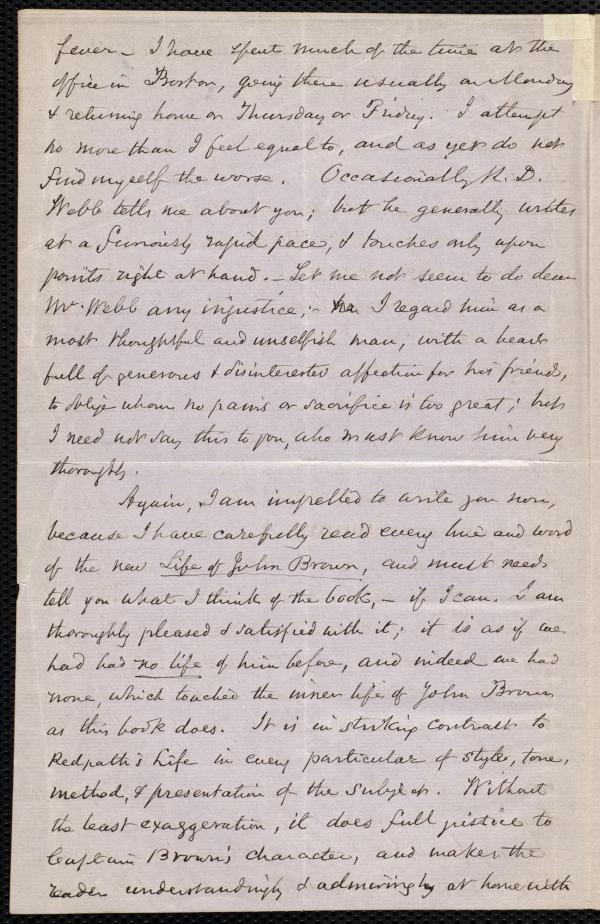 fever – I have spent much of the time at the
office in Boston, going there usually on Monday
& returning home on Thursday or Friday. I attempt
no more than I feel equal to, and as yet do not
find myself the worse. Occasionally R. D.
Webb tells me about you; but he generally writes
at a furiously rapid pace, & touches only upon
points right at hand. – Let me not seem to do dear
Mr. Webb any injustice; – I regard him as a
most thoughtful and unselfish man, with a heart
full of generous & disinterested affection for his friends,
to oblige whom no pains or sacrifice is too great; but
I need not say this to you, who must know him very
thoroughly.
Again, I am impelled to write you now,
because I have carefully read every line and word
of the new Life of John Brown, and must needs
tell you what I think of the book, – if I can. I am
thoroughly pleased & satisfied with it; it is as if we
had had no life of him before, and indeed we had
none, which touched the inner life of John Brown
as this book does. It is in striking contrast to
Redpath's Life in every particular of style, tone,
method, & presentation of the subject. Without
the least exaggeration, it does full justice to
Captain Brown's character, and makes the
reader understandingly & admiringly at home with